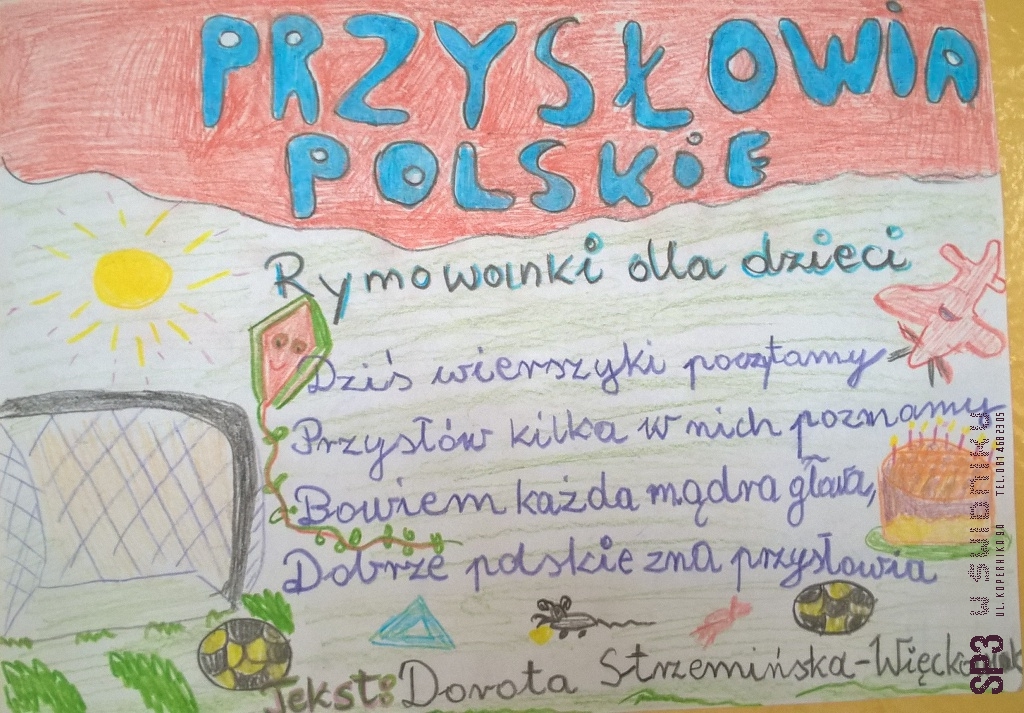 PRZYSŁOWiA
POLSKiE
Rymowanki dla dzieci
Dziś wierszyki poczytamy
Przysłów kilka w nich poznamy
Bowiem każda mądra głowa,
Dobrze polskie zna przysłowia
Tekst: Dorota Strzemińska-Więckowiak
SP3
UL. KOPERNIKA 90
TEL. 081 458 23 05